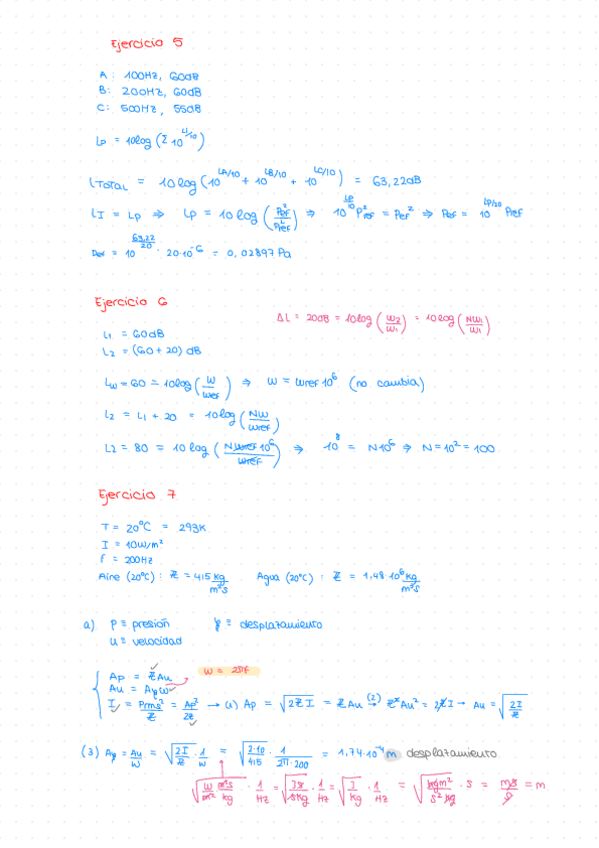 Ejercicio 5
A: 100Hz, 60dB
B: 200Hz, 60dB
C: 500Hz, 55dB
Lp = 10log (Σ 10^(Li/10))
LTOTAL = 10 log (10^(LA/10) + 10^(LB/10) + 10^(LC/10)) = 63,22dB
LI = Lp ⇒ Lp = 10 log (Pef²/Pref²) ⇒ 10^(Lp/10) P²ref = Pef² ⇒ Pef = 10^(Lp/20) Pref
Pef = 10^(63,22/20) · 20·10^-6 = 0,02897 Pa
Ejercicio 6
ΔL = 20dB = 10log (W2/W1) = 10log (NW1/W1)
L1 = 60dB
L2 = (60+20) dB
Lw = 60 = 10log (W/Wref) ⇒ W = Wref 10^6 (no cambia)
L2 = L1 + 20 = 10log (NW/Wref)
L2 = 80 = 10 log (N Wref 10^6/Wref) ⇒ 10^8 = N·10^6 ⇒ N = 10² = 100
Ejercicio 7
T = 20°C = 293K
I = 10W/m²
f = 200Hz
Aire (20°C): Z = 415 kg/m²s Agua (20°C): Z = 1,48·10^6 kg/m²s
a) p ≡ presión ξ ≡ desplazamiento
u ≡ velocidad
Ap = Z Au w = 2πf
Au = Aξ w
I = Prms²/Z = Ap²/2Z → (1) Ap = √(2ZI) = Z Au (2)→ Z² Au² = 2ZI → Au = √(2I/Z)
(3) Aξ = Au/w = √(2I/Z) · 1/w = √(2·10/415) · 1/(2π·200) = 1,74·10^-4 m desplazamiento
√(W/m² m²s/kg) · 1/Hz = √(Js/skg) · 1/Hz = √(J/kg) · 1/Hz = √(kgm²/s²kg) · s = ms/s = m